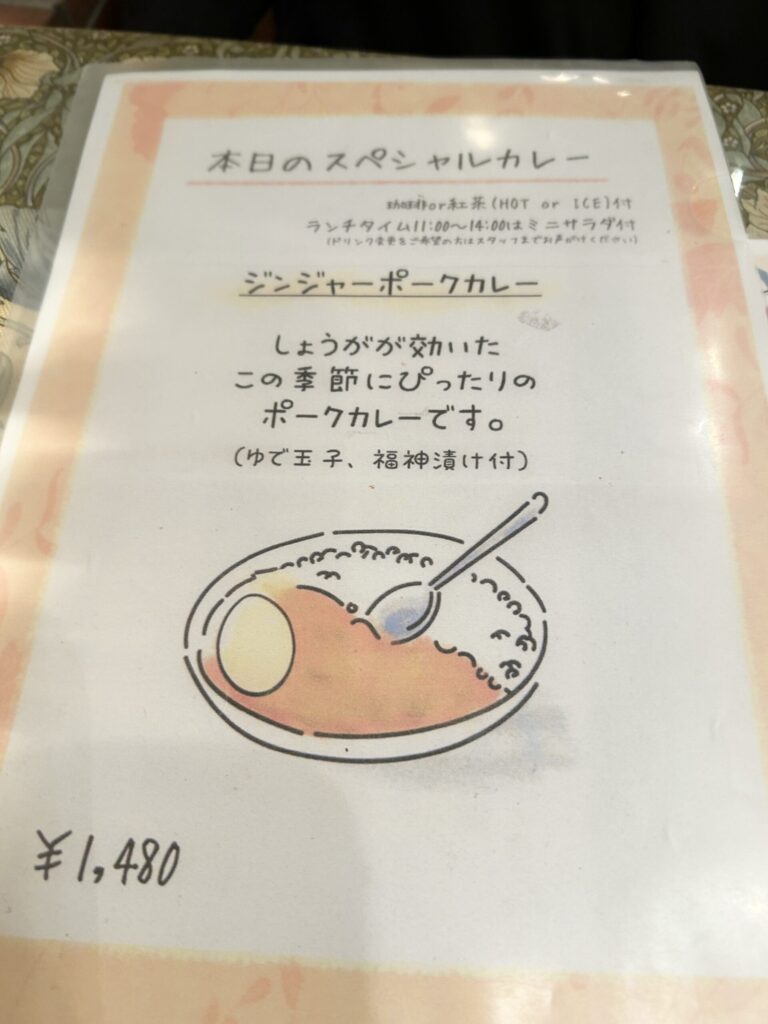 本日のスペシャルカレー
珈琲or紅茶(HOT or ICE)付
ランチタイム11:00～14:00はミニサラダ付
(ドリンク変更をご希望の方はスタッフまでお声がけください)
ジンジャーポークカレー
しょうがが効いた
この季節にぴったりの
ポークカレーです。
(ゆで玉子、福神漬け付)
¥1,480